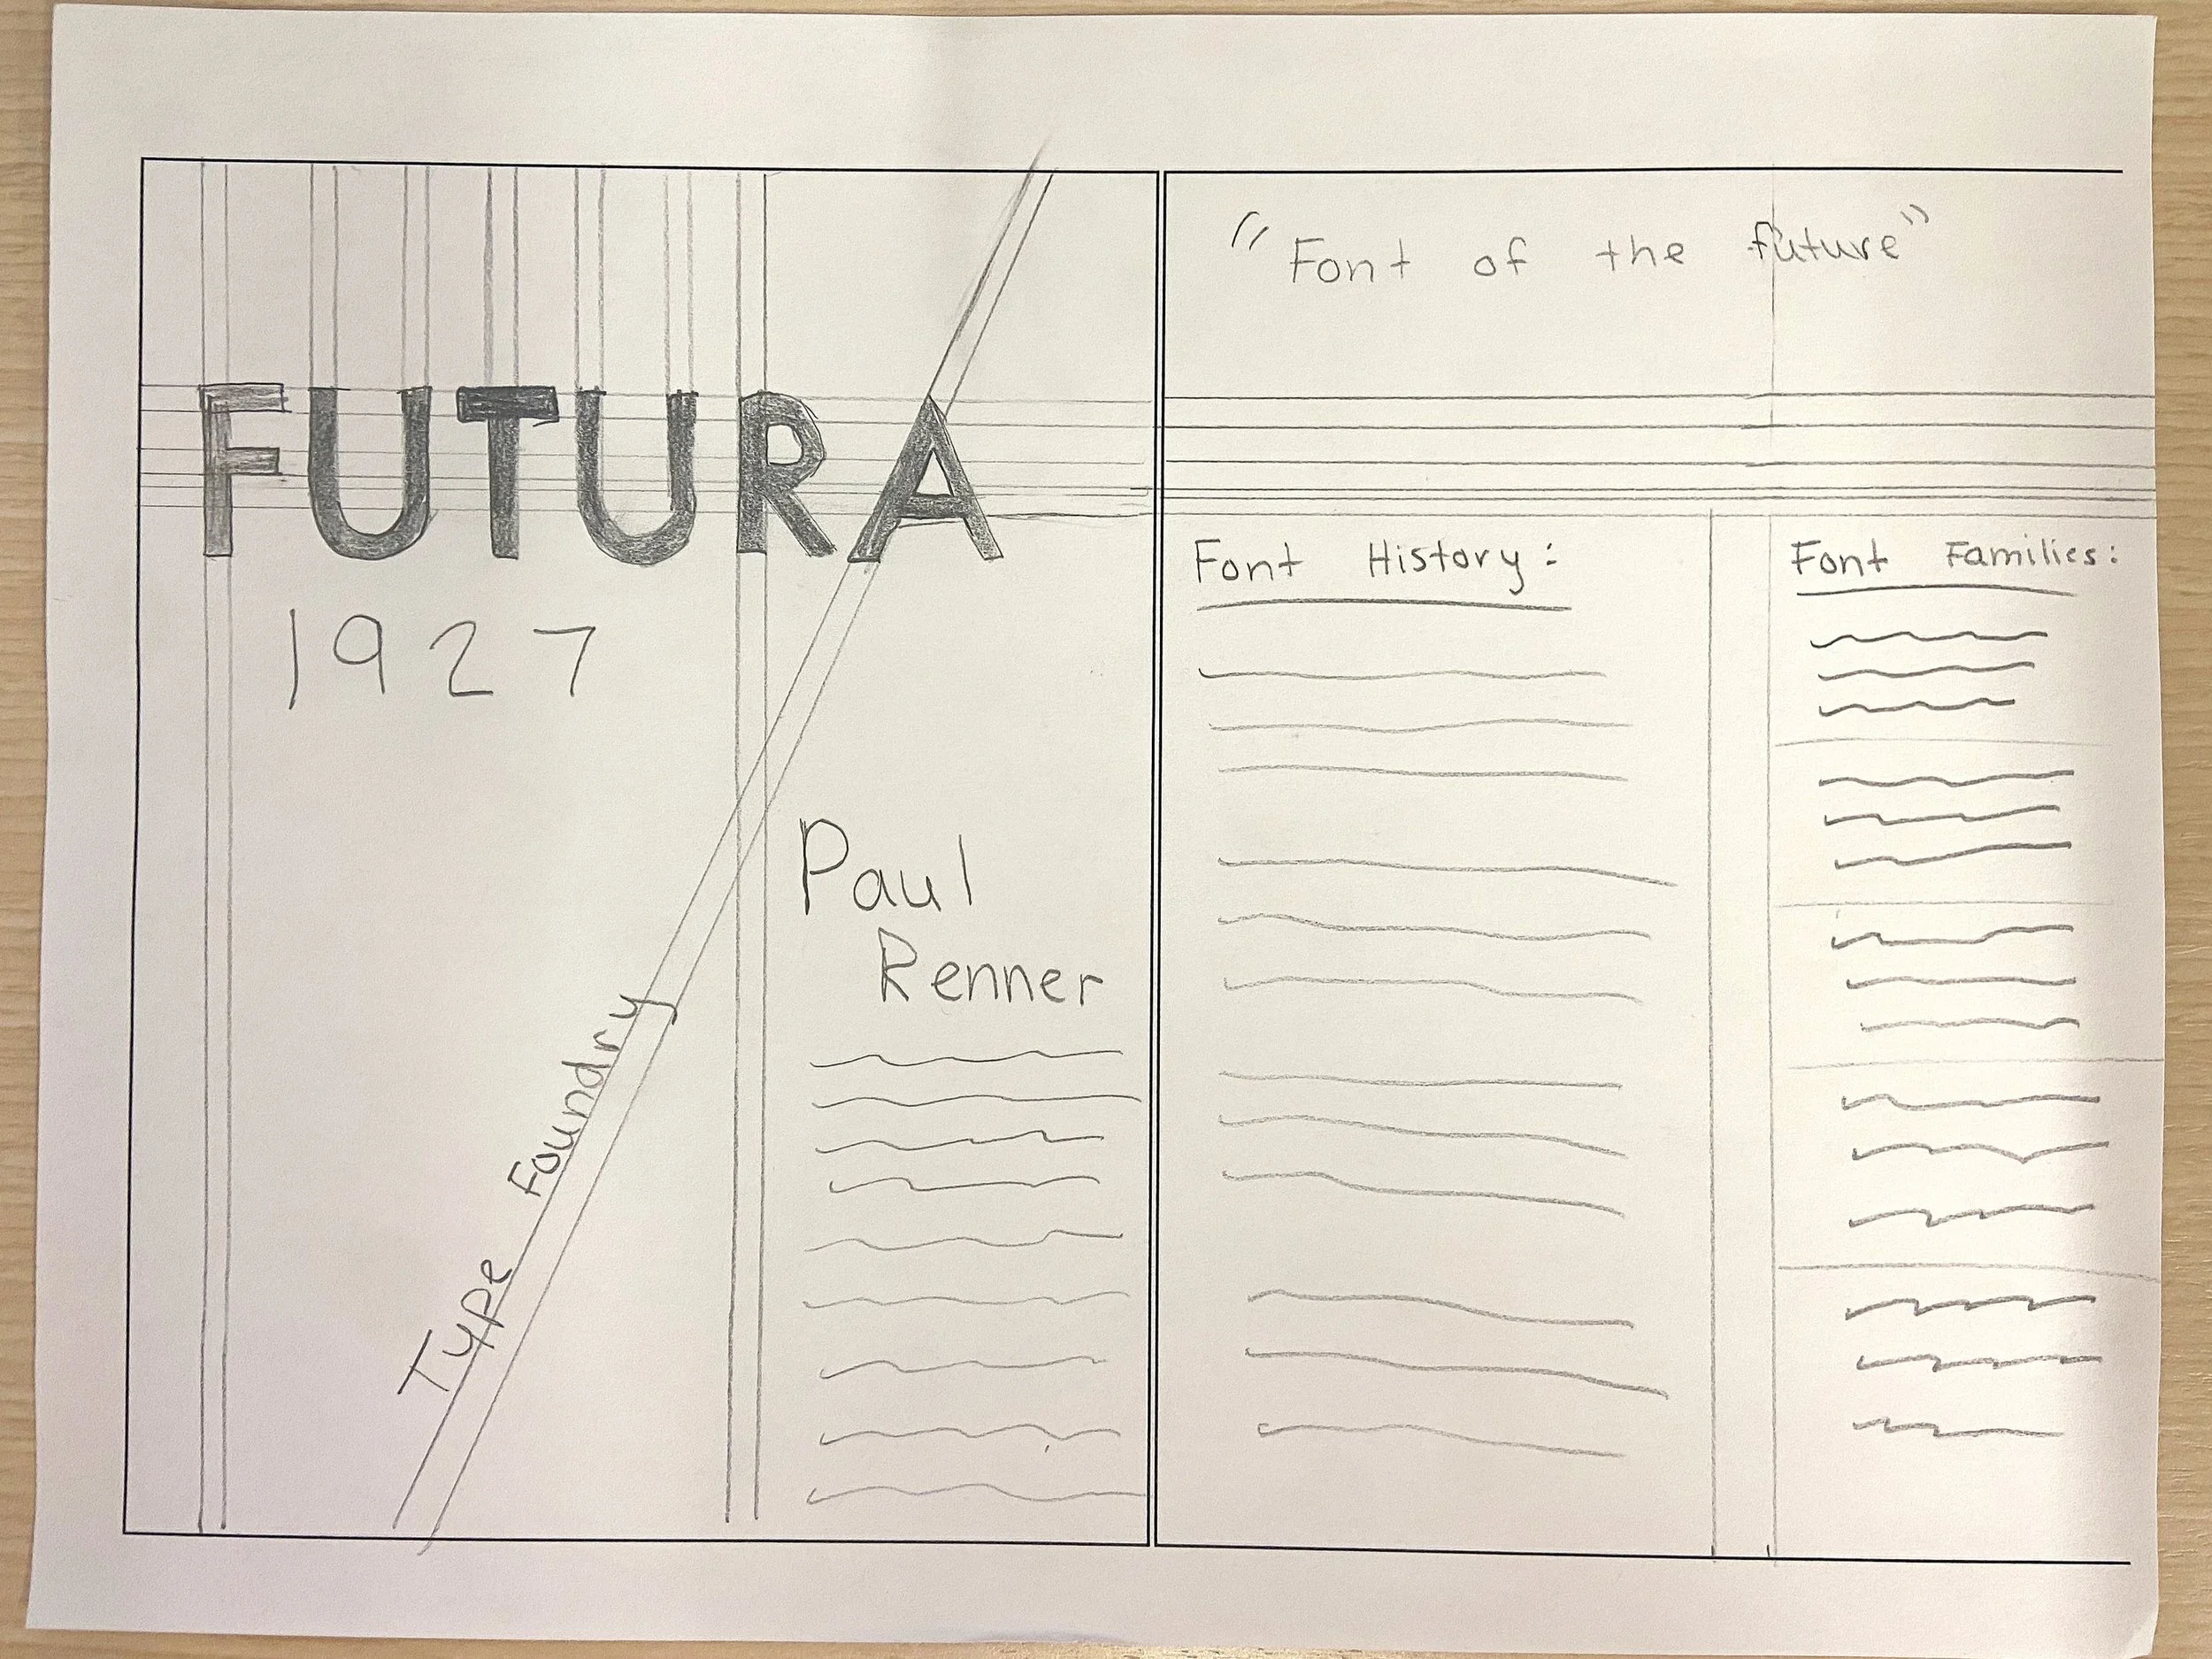 FUTURA
1927
Paul
Renner
Type Foundry
"Font of the future"
Font History:
Font Families: